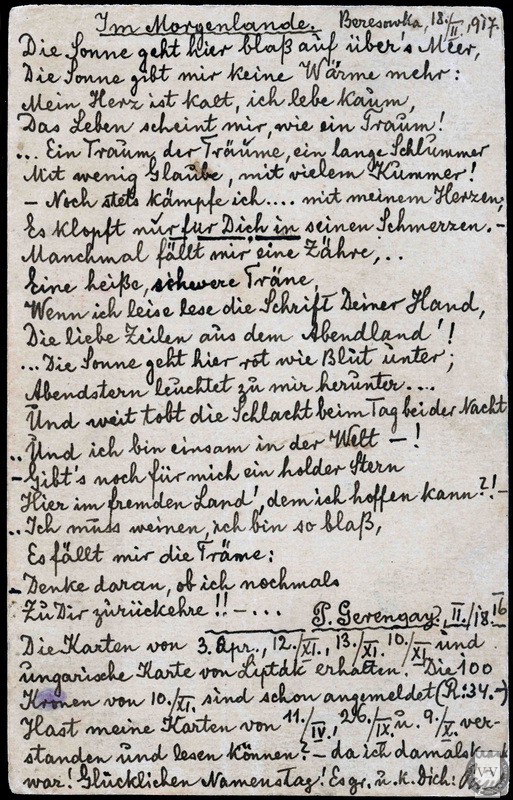 Im Morgenlande. Beresowka, 18./II., 917.
Die Sonne geht hier blaß auf über's Meer,
Die Sonne gibt mir keine Wärme mehr:
Mein Herz ist kalt, ich lebe kaum,
Das Leben scheint mir, wie ein Traum!
... Ein Traum, der Träume, ein lange Schlummer
Mit wenig Glaube, mit vielem Kummer!
- Noch stets kämpfe ich.... mit meinem Herzen;
Es klopft nur für Dich in seinen Schmerzen. -
Manchmal fällt mir eine Zähre,..
Eine heiße, schwere Träne,
Wenn ich leise lese die Schrift Deiner Hand,
Die liebe Zeilen aus dem Abendland'!
... Die Sonne geht hier rot wie Blut unter;
Abendstern leuchtet zu mir herunter....
Und weit tobt die Schlacht beim Tag bei der Nacht
.. Und ich bin einsam in der Welt - !
- Gibt's noch für mich ein holder Stern
Hier im fremden Land', dem ich hoffen kann?! -
.. Ich muss weinen, ich bin so blaß,
Es fällt mir die Träme:
- Denke daran, ob ich nochmals
Zu Dir zurückehre!! - ... P. Gerengay, II./18. 16
Die Karten von 3. Apr., 12./XI., 13./XI. 10./XI. und
ungarische Karte von Liptak erhalten. Die 100
Kronen von 10./XI. sind schon angemeldet (R:34.-)
Hast meine Karten von 11./IV., 26./IX. u. 9./X. ver-
standen und lesen können? - da ich damals krank
war! Glücklichen Namenstag! Es gr. u. k. Dich: